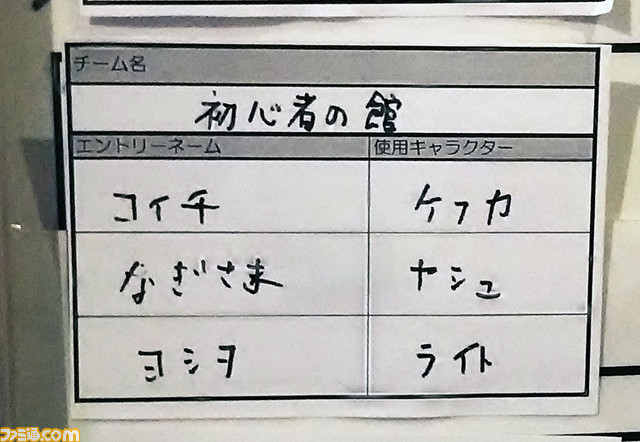 チーム名
初心者の館
エントリーネーム 使用キャラクター
コイチ ケフカ
なぎさま ヤシュ
ヨシヲ ライト
ファミ通.com